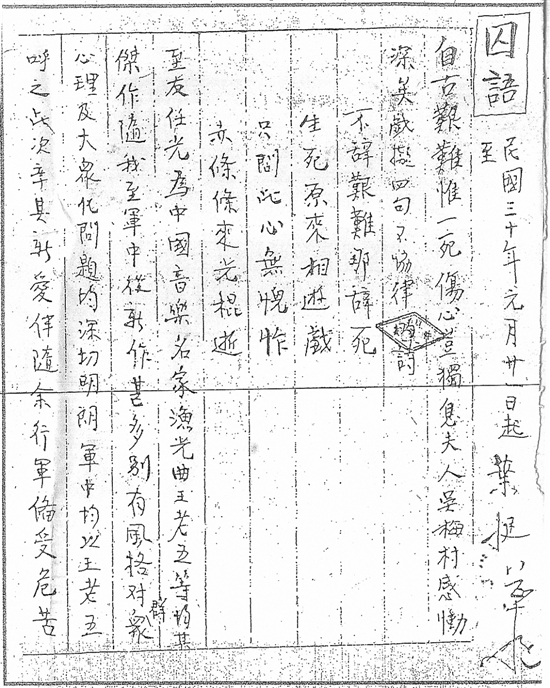 囚語
民國三十年元月廿一日起
至
葉挺
自古艱難惟一死傷心豈獨息夫人吳梅村感慟
深矣戲擬四句不協律 詩
不辭艱難那辭死
生死原來相遊戲
只問此心無愧怍
赤條條來光棍逝
至友任光為中國音樂名家漁光曲王老五等均其
傑作隨我至軍中從新作甚多別有風格对群眾
心理及大眾化問題均深切明朗軍中均以王老五
呼之此次率其新愛伴隨余行軍備受危苦